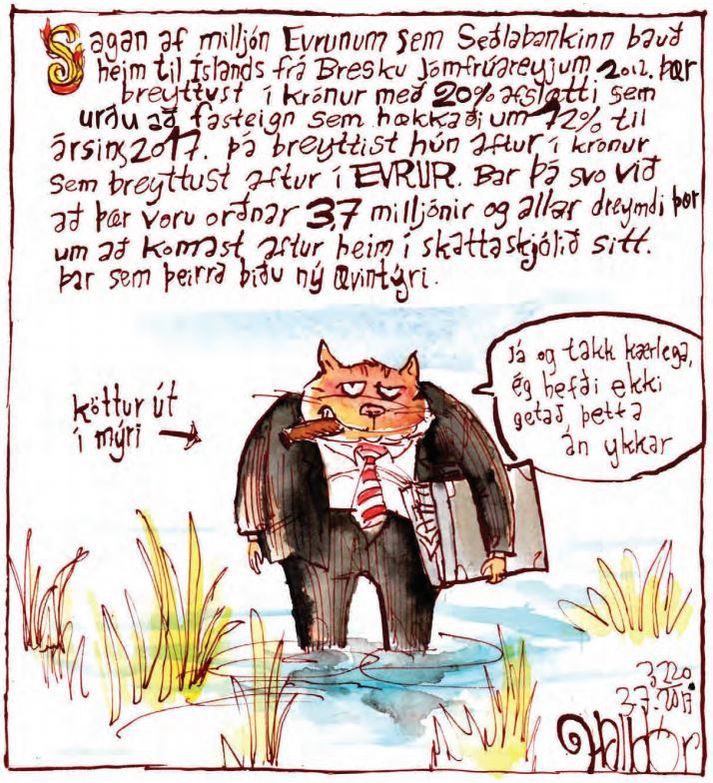 Sagan af milljón Evrunum sem Seðlabankinn bauð
heim til Íslands frá Bresku Jómfrúareyjum 2012. þær
breyttust í krónur með 20% afslætti sem
urðu að fasteign sem hækkaði um 72% til
ársins 2017. þá breyttist hún aftur í krónur
sem breyttust aftur í EVRUR. Bar þá svo við
að þær voru orðnar 3,7 milljónir og allar dreymdi þær
um að komast aftur heim í skattaskjólið sitt.
þar sem þeirra biðu ný ævintýri.
Já og takk kærlega,
ég hefði ekki
getað þetta
án ykkar
köttur út
í mýri
3.7.2017.
Halldór